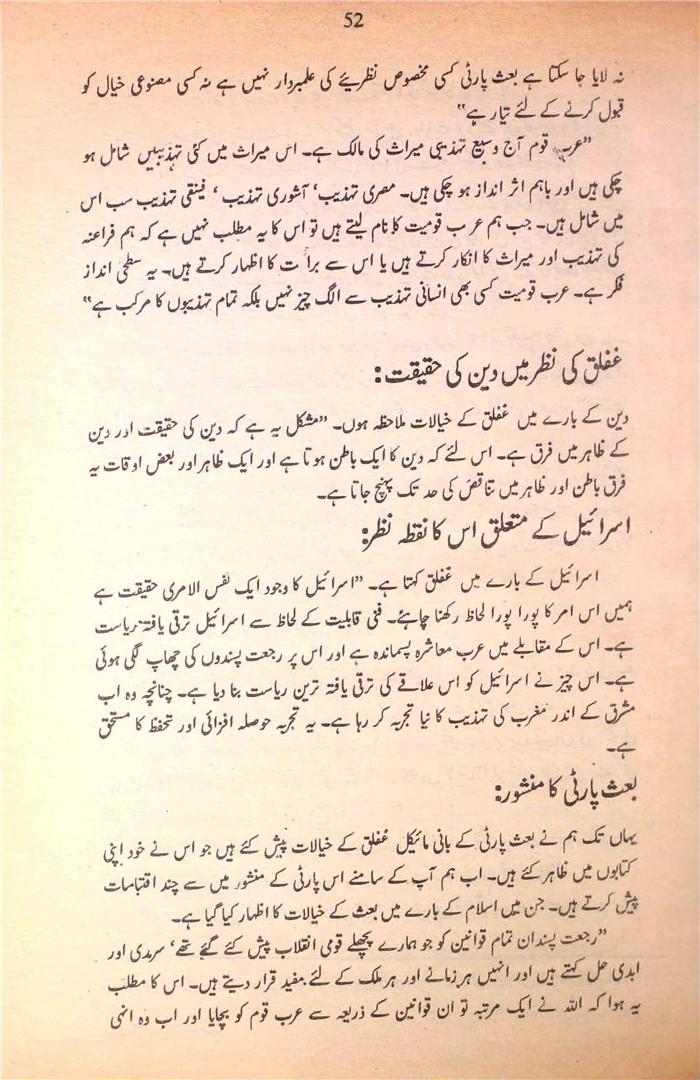 52
نہ لایا جا سکتا ہے بعث پارٹی کسی مخصوص نظریئے کی علمبردار نہیں ہے نہ کسی مصنوعی خیال کو
قبول کرنے کے لئے تیار ہے“
”عرب قوم آج وسیع تہذیبی میراث کی مالک ہے۔ اس میراث میں کئی تہذیبیں شامل ہو
چکی ہیں اور باہم اثر انداز ہو چکی ہیں۔ مصری تہذیب‘ آشوری تہذیب ‘ فینقی تہذیب سب اس
میں شامل ہیں۔ جب ہم عرب قومیت کا نام لیتے ہیں تو اس کا یہ مطلب نہیں ہے کہ ہم فراعنہ
کی تہذیب اور میراث کا انکار کرتے ہیں یا اس سے برأت کا اظہار کرتے ہیں۔ یہ سطحی انداز
فکر ہے۔ عرب قومیت کسی بھی انسانی تہذیب سے الگ چیز نہیں بلکہ تمام تہذیبوں کا مرکب ہے“
عفلق کی نظر میں دین کی حقیقت:
دین کے بارے میں عفلق کے خیالات ملاحظہ ہوں۔ ”مشکل یہ ہے کہ دین کی حقیقت اور دین
کے ظاہر میں فرق ہے۔ اس لئے کہ دین کا ایک باطن ہوتا ہے اور ایک ظاہر اور بعض اوقات یہ
فرق باطن اور ظاہر میں تناقض کی حد تک پہنچ جاتا ہے۔
اسرائیل کے متعلق اس کا نقطہ نظر:
اسرائیل کے بارے میں عفلق کہتا ہے۔ ”اسرائیل کا وجود ایک نفس الامری حقیقت ہے
ہمیں اس امر کا پورا پورا لحاظ رکھنا چاہئے۔ فنی قابلیت کے لحاظ سے اسرائیل ترقی یافتہ ریاست
ہے۔ اس کے مقابلے میں عرب معاشرہ پسماندہ ہے اور اس پر رجعت پسندوں کی چھاپ لگی ہوئی
ہے۔ اس چیز نے اسرائیل کو اس علاقے کی ترقی یافتہ ترین ریاست بنا دیا ہے۔ چنانچہ وہ اب
مشرق کے اندر مغرب کی تہذیب کا نیا تجربہ کر رہا ہے۔ یہ تجربہ حوصلہ افزائی اور تحفظ کا مستحق
ہے۔
بعث پارٹی کا منشور:
یہاں تک ہم نے بعث پارٹی کے بانی مائیکل عفلق کے خیالات پیش کئے ہیں جو اس نے خود اپنی
کتابوں میں ظاہر کئے ہیں۔ اب ہم آپ کے سامنے اس پارٹی کے منشور میں سے چند اقتباسات
پیش کرتے ہیں۔ جن میں اسلام کے بارے میں بعث کے خیالات کا اظہار کیا گیا ہے۔
”رجعت پسند ان تمام قوانین کو جو ہمارے پچھلے قومی انقلاب پیش کئے گئے تھے‘ سرمدی اور
ابدی حل کہتے ہیں اور انہیں ہر زمانے اور ہر ملک کے لئے مفید قرار دیتے ہیں۔ اس کا مطلب
یہ ہوا کہ اللہ نے ایک مرتبہ تو ان قوانین کے ذریعہ سے عرب قوم کو بچایا اور اب وہ انہی